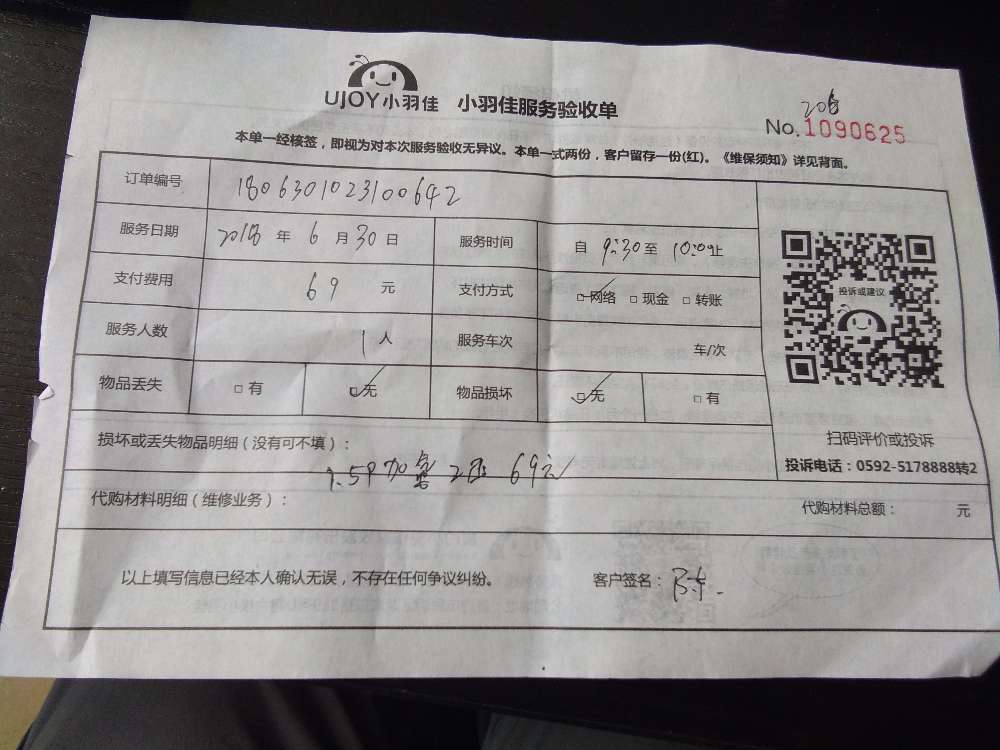 UJOY小羽佳 小羽佳服务验收单
No.1090625
本单一经核签，即视为对本次服务验收无异议。本单一式两份，客户留存一份(红)。《维保须知》详见背面。
订单编号 1806301023100642
服务日期 2018 年 6 月 30 日 服务时间 自 9:30 至 10:00 止
支付费用 69 元 支付方式 □网络 □现金 □转账
投诉或建议
服务人数 1 人 服务车次 车/次
物品丢失 □有 □无 物品损坏 □无 □有
扫码评价或投诉
投诉电话：0592-5178888转2
损坏或丢失物品明细（没有可不填）：
1.5P加氟 2压 69元
代购材料明细（维修业务）： 代购材料总额： 元
以上填写信息已经本人确认无误，不存在任何争议纠纷。 客户签名：